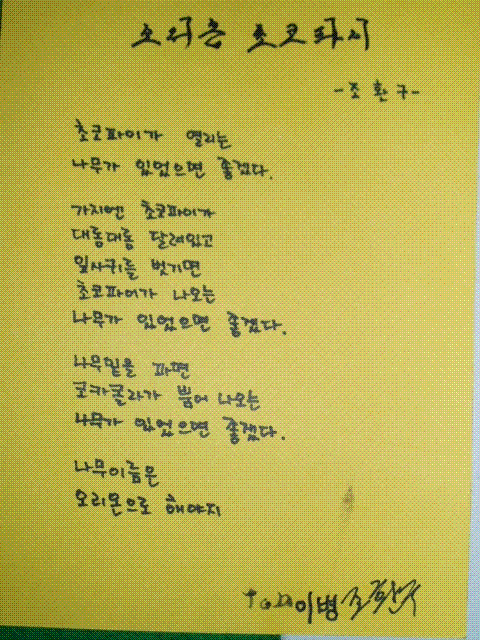 오리온 초코파이
- 조 환 구 -
초코파이가 열리는
나무가 있었으면 좋겠다.
가지엔 초코파이가
대롱대롱 달려있고
잎사귀를 벗기면
초코파이가 나오는
나무가 있었으면 좋겠다.
나무밑을 파면
코카콜라가 뿜어 나오는
나무가 있었으면 좋겠다.
나무이름은
오리온으로 해야지
이병